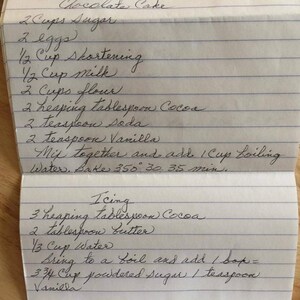 Chocolate Cake
2 Cups Sugar
2 eggs
1/2 Cup Shortening
1/2 Cup Milk
2 Cups flour
2 heaping tablespoon Cocoa
2 teaspoon Soda
2 teaspoon Vanilla
Mix together and add 1 Cup boiling
Water. Bake 350° 30-35 min.
Icing
3 heaping tablespoon Cocoa
2 tablespoon butter
1/3 Cup Water
Bring to a boil and add 1 box =
3 3/4 Cup powdered sugar 1 teaspoon
Vanilla